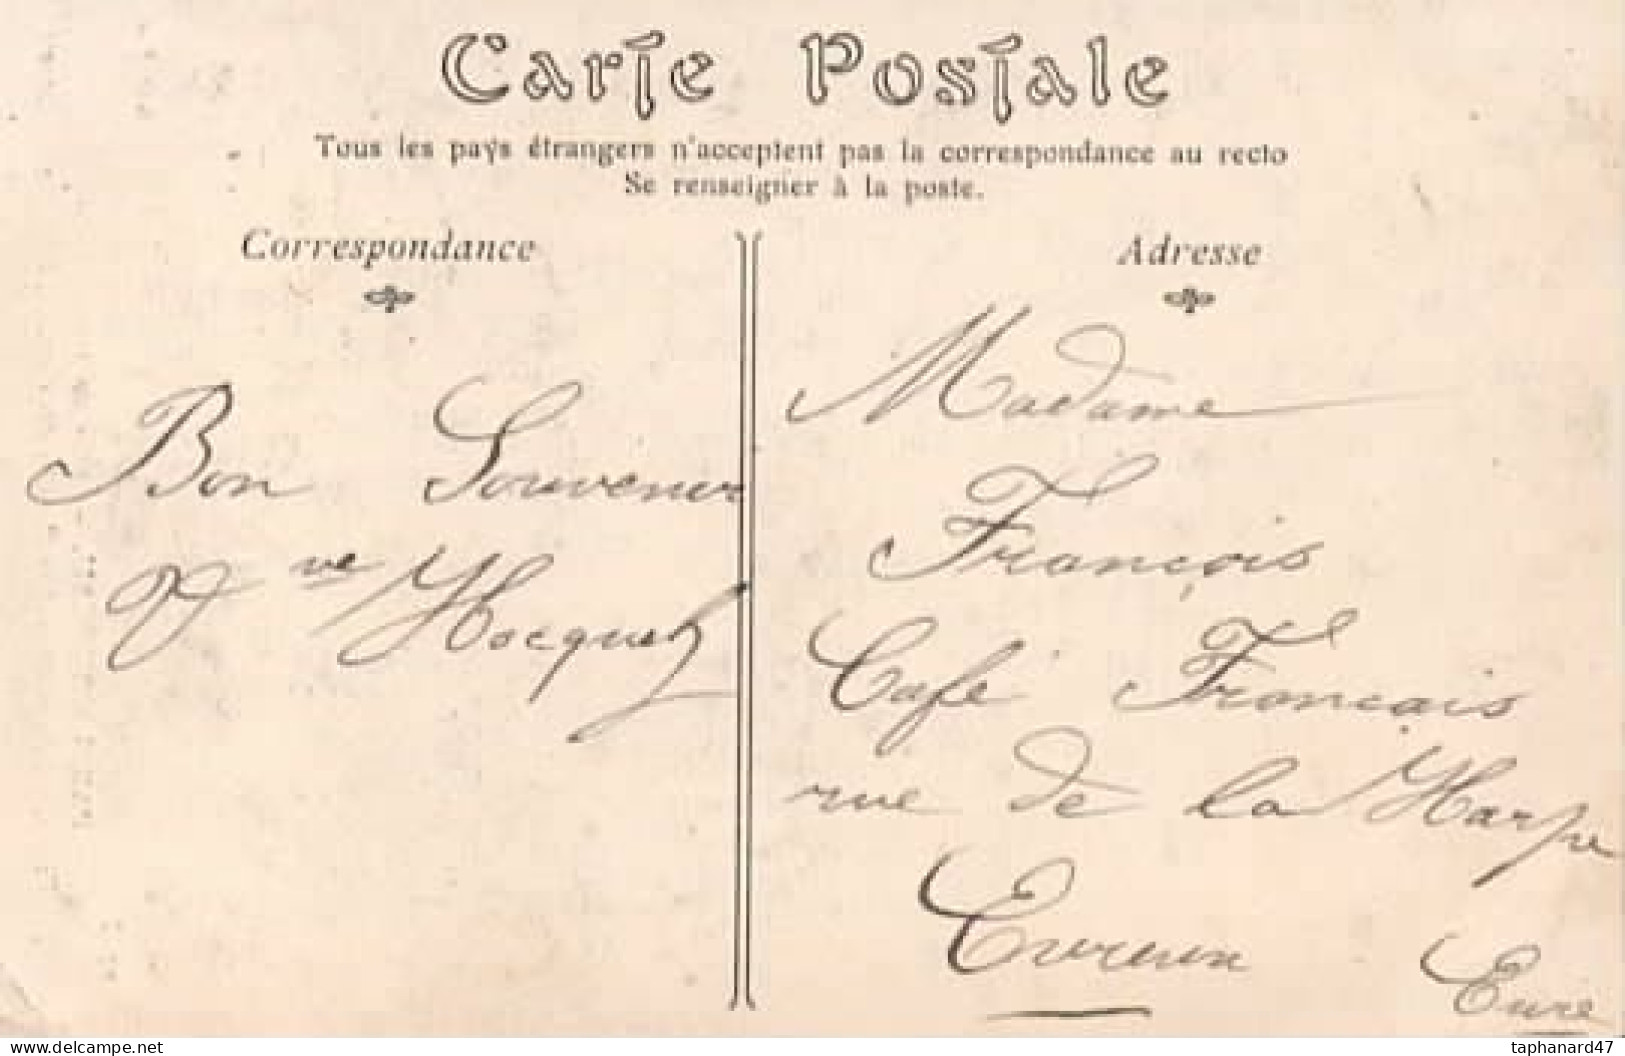 Carte Postale
Tous les pays étrangers n'acceptent pas la correspondance au recto
Se renseigner à la poste.
Correspondance
Bon Souvenir
Vve Hocquet
Adresse
Madame
François
Café Français
rue de la Harpe
Evreux
Eure
taphanard47